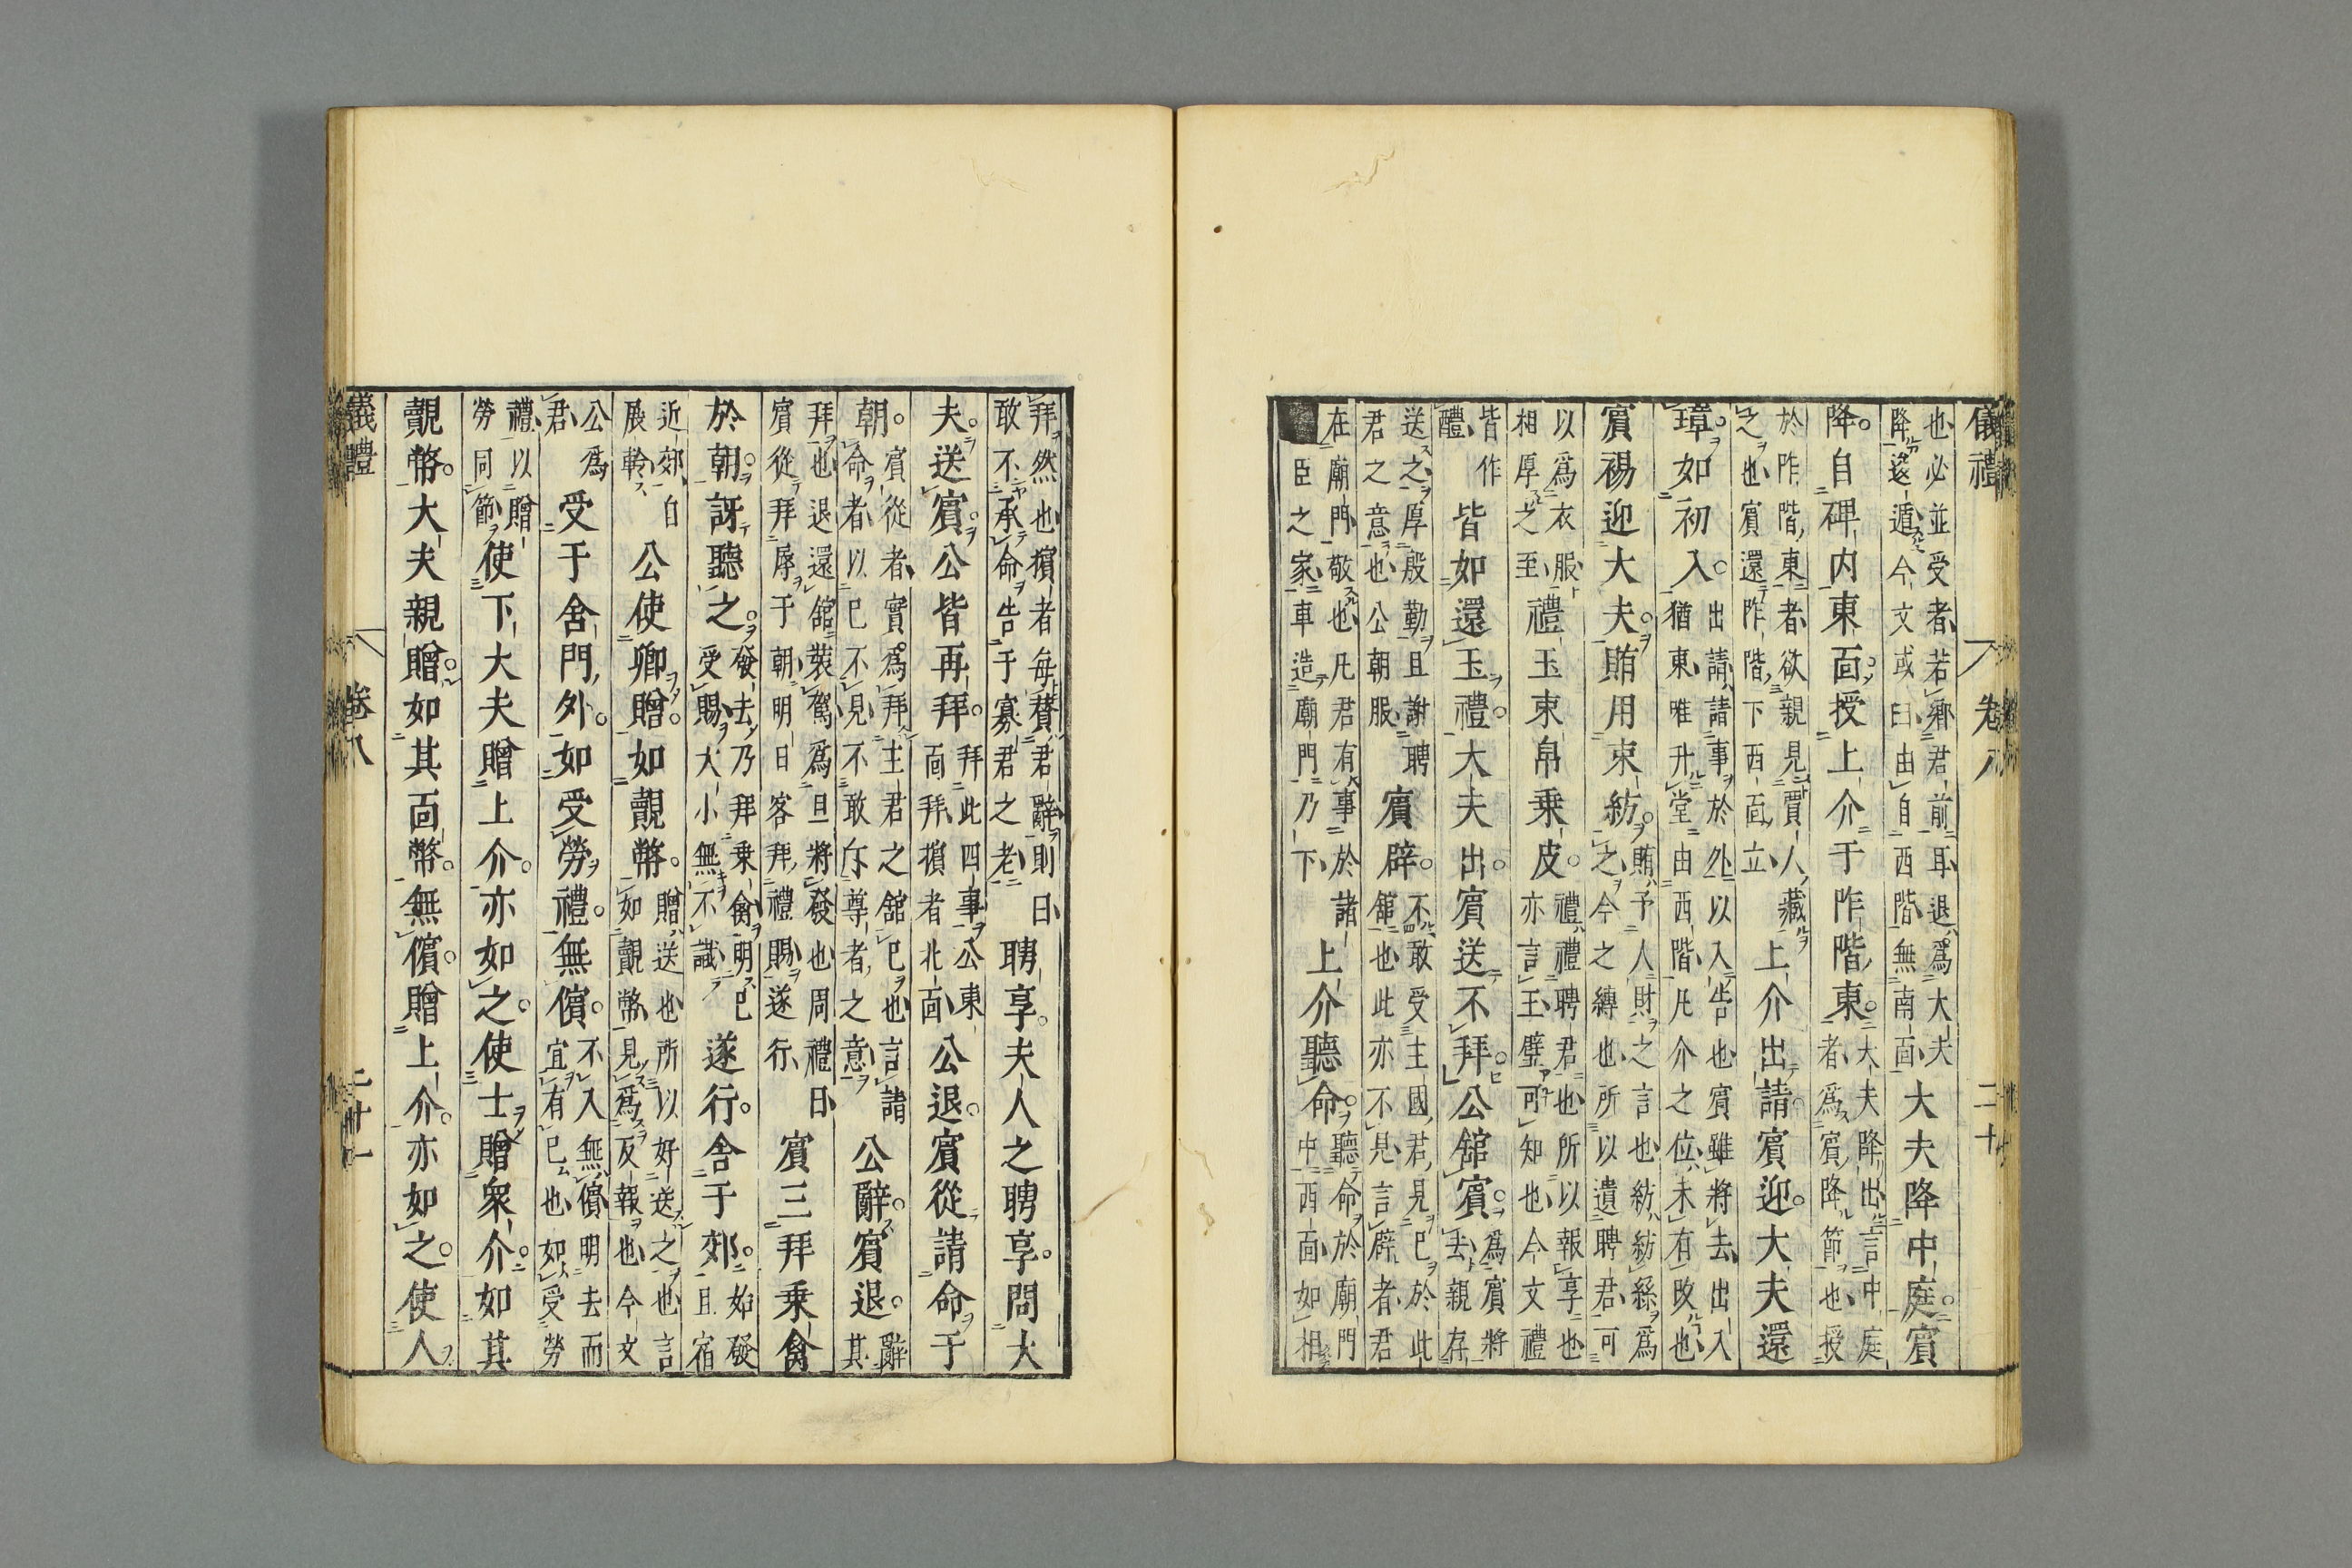 儀禮　卷八　二十
也必並受者若鄉君前耳退爲大夫
降逡遁今文或曰由自西階無南面
大夫降中庭賓
降自碑内東面授上介于阼階東
大夫降出言中庭
者爲賓降節也授
於阼階東者欲親見賈人藏
之也賓還阼階下西面立
上介出請賓迎大夫還
璋如初入
出請請事於外以入告也賓雖將去出入
猶東唯升堂由西階凡介之位未有改也
賓裼迎大夫賄用束紡
賄予人財之言也紡紡絲爲
之今之縳也所以遺聘君可
以爲衣服
相厚之至
禮玉束帛乘皮
禮禮聘君也所以報享也
亦言玉璧可知也今文禮
皆作
醴
皆如還玉禮大夫出賓送不拜公館賓
爲賓將
去親存
送之厚殷勤且謝聘
君之意也公朝服
賓辟
不敢受主國君見己於此
館也此亦不見言辟者君
在廟門敬也凡君有事於諸
臣之家車造廟門乃下
上介聽命
聽命於廟門
中西面如相
拜然也擯者每贊君辭則曰
敢不承命告于寡君之老
聘享夫人之聘享問大
夫送賓公皆再拜
拜此四事公東
面拜擯者北面
公退賓從請命于
朝
賓從者實爲拜主君之館己也言請
命者以已不見不敢斥尊者之意
公辭賓退
辭
其
拜也退還館裝駕爲旦將發也周禮曰
賓從拜辱于朝明日客拜禮賜遂行
賓三拜乘禽
於朝訝聽之
發去乃拜乘禽明已
受賜大小無不識
遂行舍于郊
始發
且宿
近郊自
展軨
公使卿贈如覿幣
贈送也所以好送之也言
如覿幣見爲反報也今文
公爲
君
受于舍門外如受勞禮無儐
不入無儐明去而
宜有已也如受勞
禮以贈
勞同節
使下大夫贈上介亦如之使士贈衆介如其
覿幣大夫親贈如其面幣無儐贈上介亦如之使人
儀禮　卷八　二十一